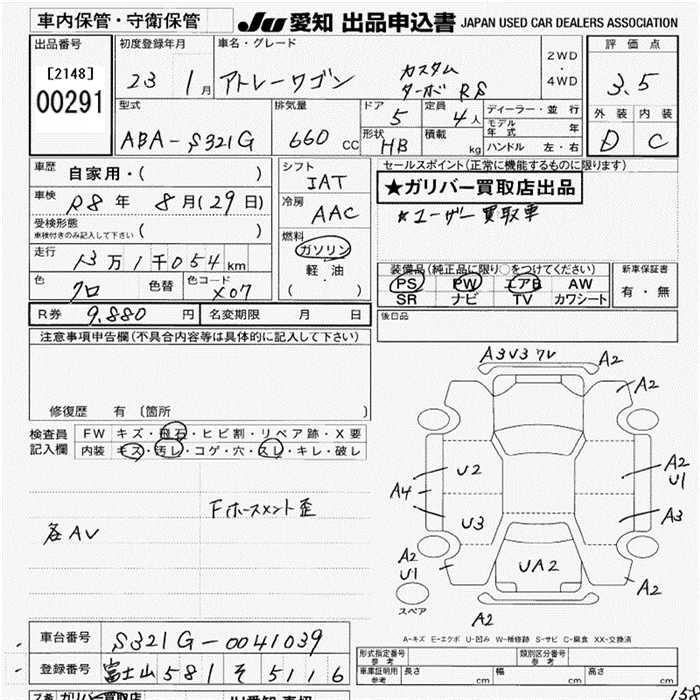 車内保管・守衛保管
JU 愛知 出品申込書 JAPAN USED CAR DEALERS ASSOCIATION
出品番号
[2148]
00291
初度登録年月
23 1月
車名・グレード
アトレーワゴン カスタム
ターボ RS
2WD
・
4WD
評価点
3.5
外装 内装
D C
型式
ABA-S321G
排気量
660 CC
ドア
5
形状
HB
定員
4人
積載
kg
ディーラー・並行
モデル年式 年
ハンドル 左・右
車歴 自家用・( )
車検 R8年 8月(29日)
受検形態
車検付きのみ記入して下さい ( )
走行 13万1千054km
色 クロ 色替 色コード X07
シフト
IAT
冷房
AAC
燃料
ガソリン
軽油
( ・ )
R券 9,880 円 名変期限 月 日
セールスポイント(正常に機能するものに限ります)
★ガリバー買取店出品
*ユーザー買取車
装備品(純正品に限り○をつけてください)
PS PW エアB AW
SR ナビ TV カワシート
新車保証書
有・無
後日品
注意事項申告欄(不具合内容等は具体的に記入して下さい)
修復歴 有 〔箇所 〕
検査員記入欄
FW キズ・飛石・ヒビ割・リペア跡・X要
内装 キズ・汚レ・コゲ・穴・スレ・キレ・破レ
Fホースメント歪
各AV
A3V3 7V A2
A2
U2
A2
U1
A4
U3
A3
A2
U1
UA2
A2
スペア
A2
A-キズ E-エクボ U-凹み W-補修跡 S-サビ C-腐食 XX-交換済
車台番号 S321G-0041039
登録番号 富士山 581 そ 5116
形式指定番号
参考
類別区分番号
参考
車庫証明用
参考
長さ cm 幅 cm 高さ cm
ガリバー買取店